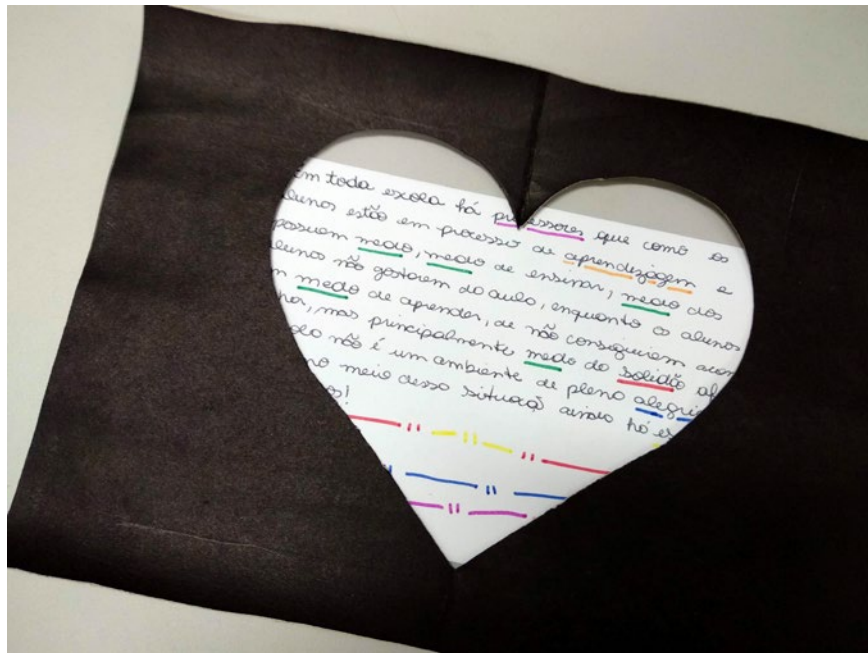 em toda escola há professores que como os
alunos estão em processo de aprendizagem e
possuem medo, medo de ensinar, medo dos
alunos não gostarem da aula, enquanto os alunos
medo de aprender, de não conseguirem
mas principalmente medo da solidão
não é um ambiente de pleno alegri
no meio dessa situação ainda há es